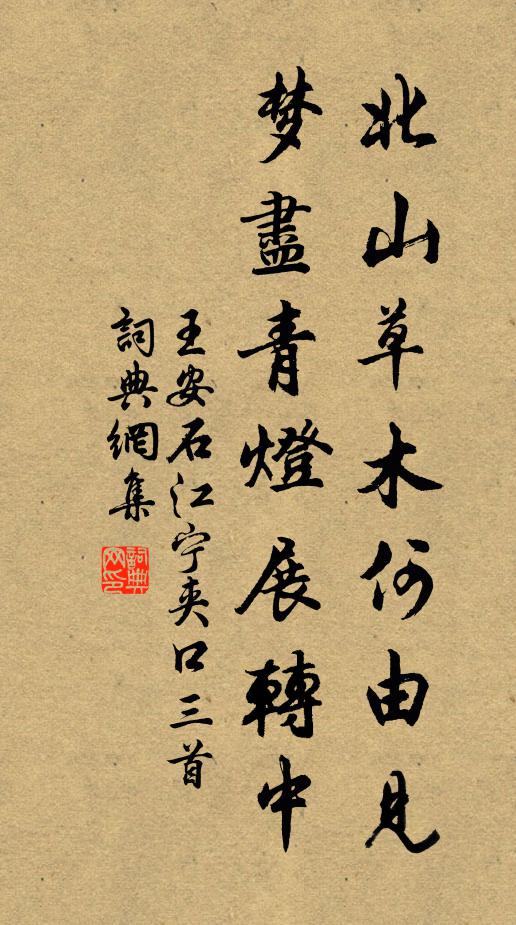 北山草木何由见
梦盡青燈展轉中
王安石江宁夹口三首
詞典網集
詞典网印